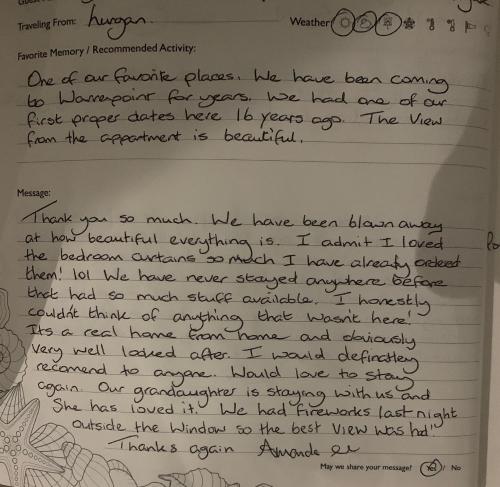 Traveling From: Lurgan.
Weather
Favorite Memory / Recommended Activity:
One of our favorite places. We have been coming
to Warrenpoint for years. We had one of our
first proper dates here 16 years ago. The View
from the appartment is beautiful.
Message:
Thank you so much. We have been blown away
at how beautiful everything is. I admit I loved
the bedroom curtains so much I have already ordered
them! lol We have never stayed anywhere before
that had so much stuff available. I honestly
couldn't think of anything that wasn't here!
Its a real home from home and obviously
very well looked after. I would definatley
recomend to anyone. Would love to stay
again. Our grandaughter is staying with us and
She has loved it. We had fireworks last night
outside the window so the best view was had!
Thanks again Amanda
May we share your message? Yes / No